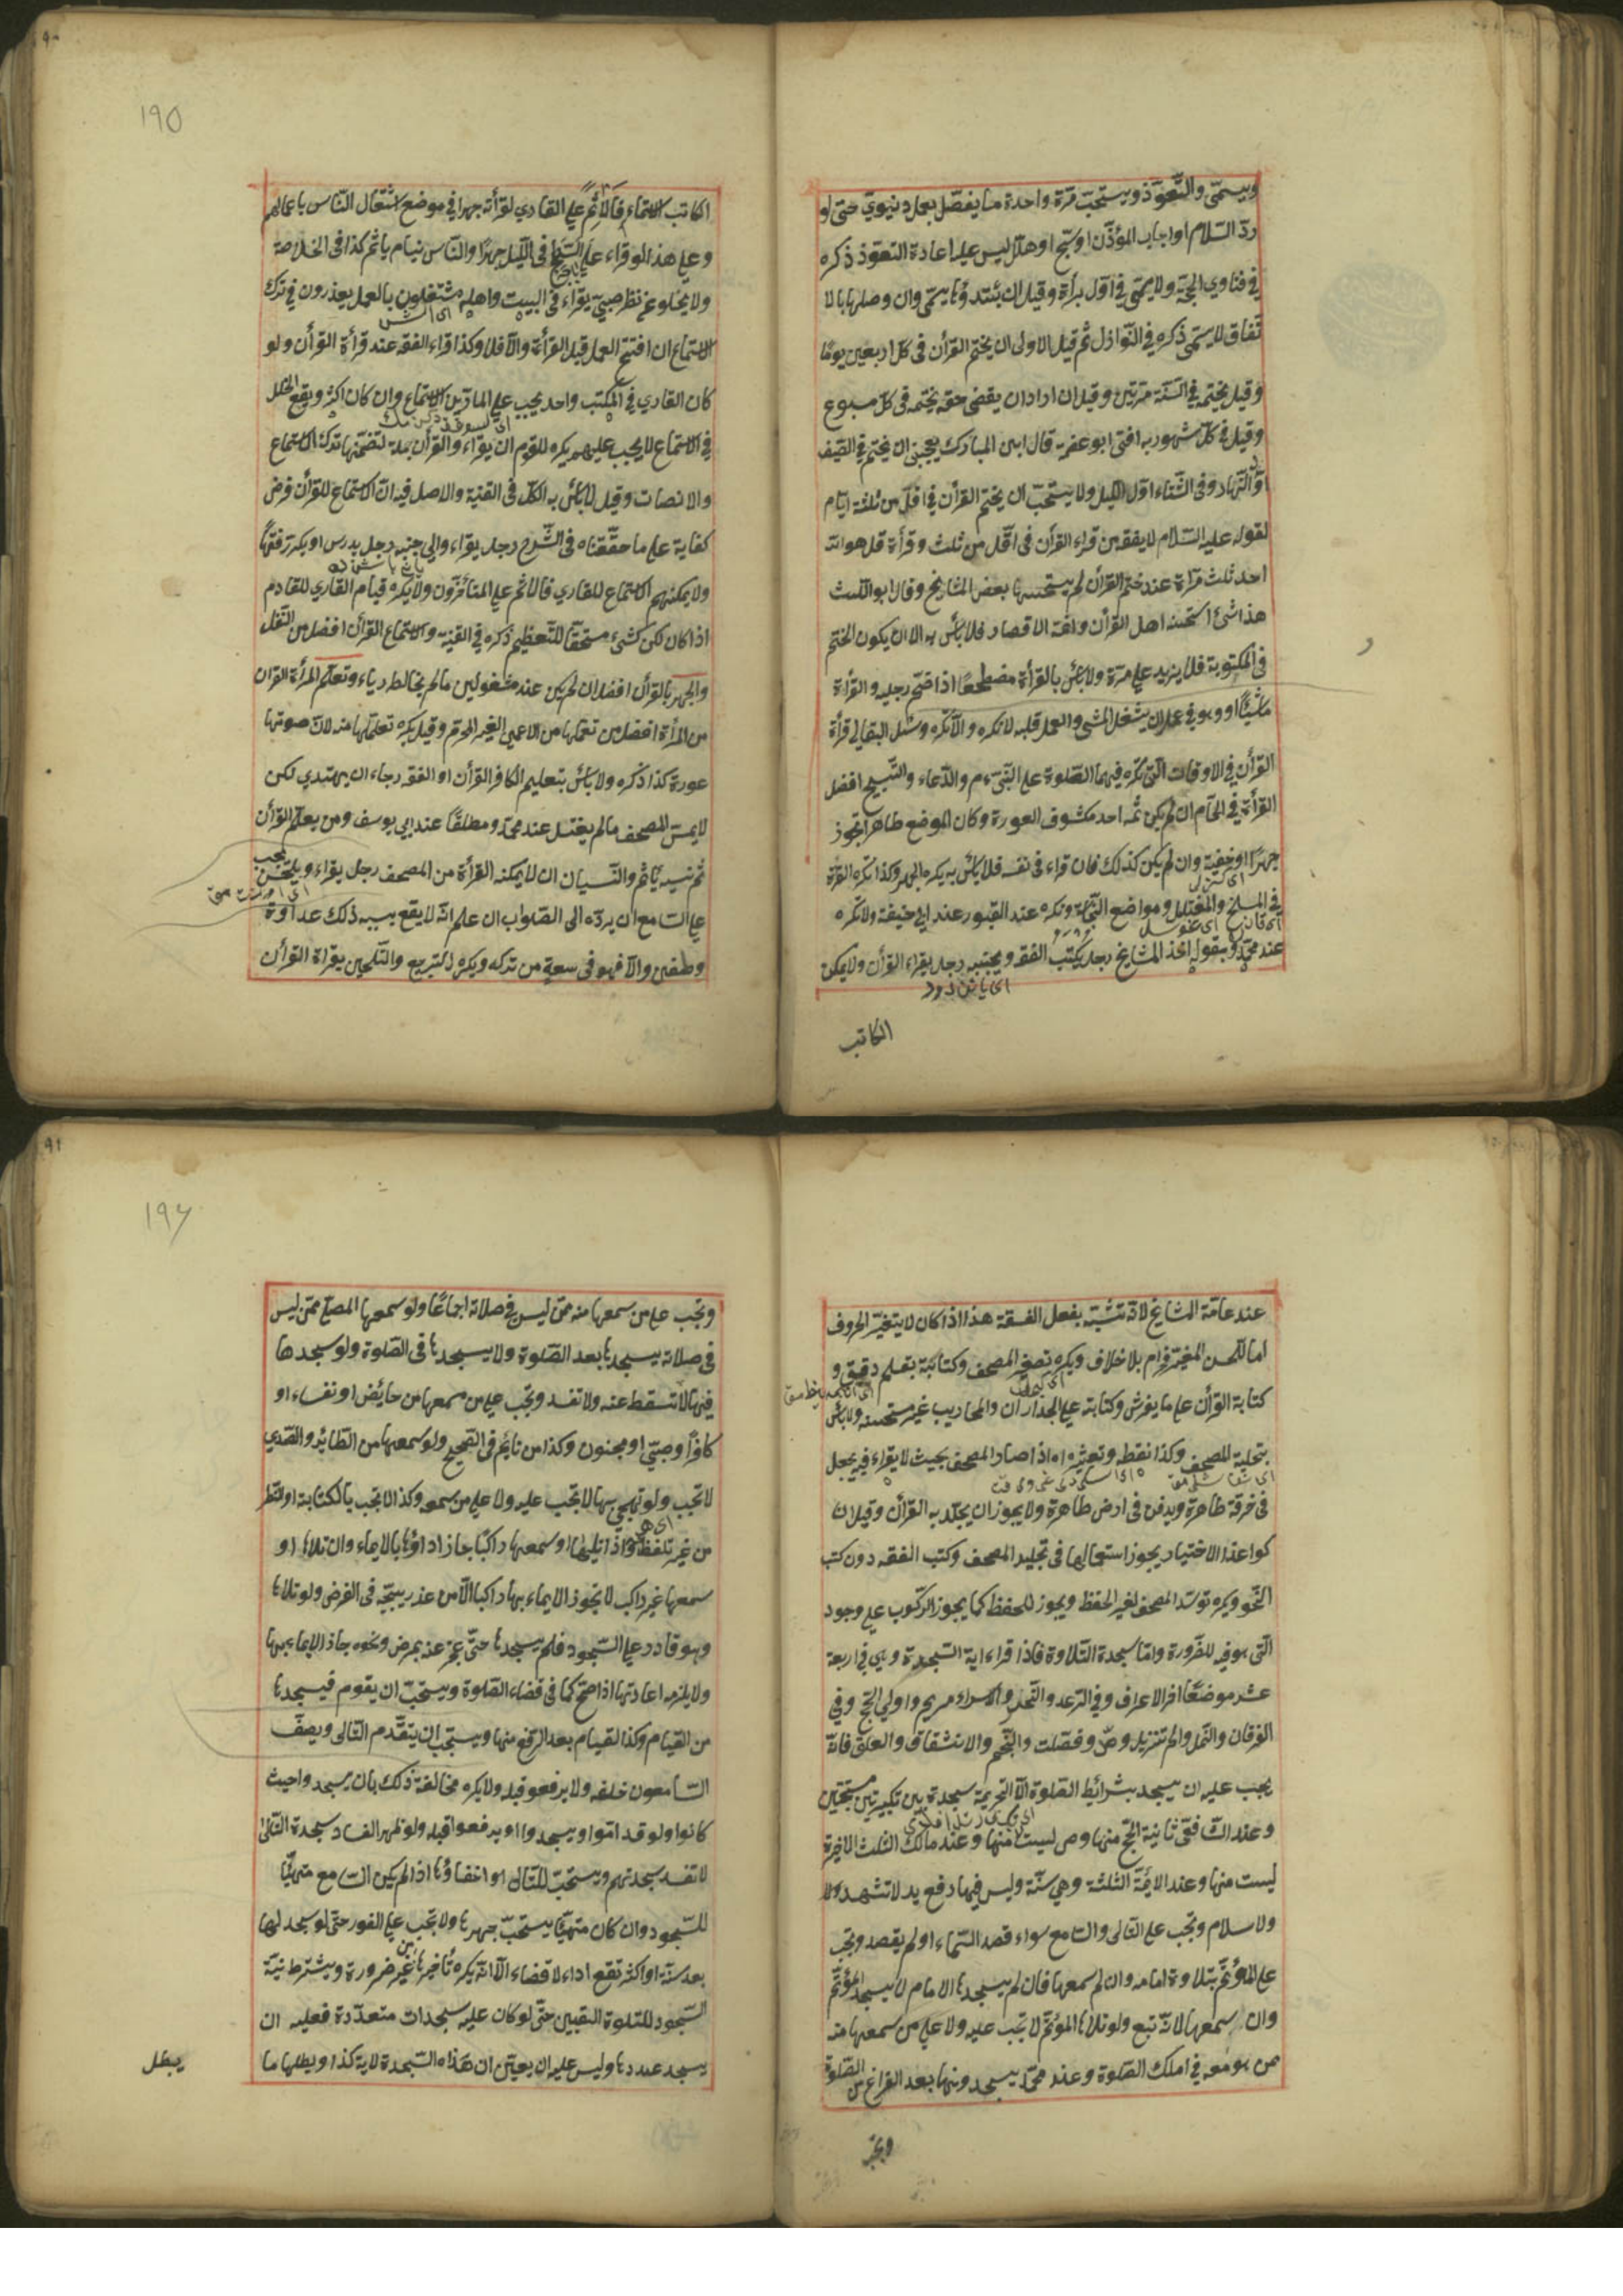 ويسمّى والتّعوّذ ويستحبّ مرّة واحدة ما يفصّل بعمل دنيويّ حتى لو
ردّ السّلام او اجاب المؤذّن او سبّح او هلّل ليس عليه اعادة التعوّذ ذكره
في فتاوي الحجّة ولا يسمّى في اوّل برأة وقيل ان يبتدؤها يسمّى وان وصلها بالا
تفاق لا يسمّى ذكره في النّوازل ثم قيل الاولى ان يختم القرأن في كلّ اربعين يومًا
وقيل يختم في السّنة مرّتين وقيل ان اراد ان يقضى حقه يختمه في كلّ سبوع
وقيل في كلّ شهر وبه افتى ابو عصمة قال ابن المبارك يعجبنى ان يختم في الصّيف
اوّل النّهار وفي الشّتاء اوّل الليل ولا يستحبّ ان يختم القرأن في اقلّ من ثلثة ايّام
لقوله عليه السّلام لا يفقه من قراء القرأن في اقلّ من ثلث وقرأة قل هو الله
احد ثلث مرّاة عند ختم القرأن لم يستحسنها بعض المشايخ وقال ابو اللّيث
هذا شئ استحسنه اهل القرأن وائمّة الامصار فلا بأس به الا ان يكون الختم
في المكتوبة فلا يزيد على مرّة ولا بأس بالقرأة مضطجعًا اذا ضمّ رجليه والقراءة
ماشيًا او وهو في عمل ان يشغل المشى والعمل قلبه لا تكره والّا تكره وسئل البقالى قرأة
القرأن في الاوقات الّتى تكره فيها الصّلوة على النّبيّ م والدّعاء والتّسبيح افضل
القرأة في الحمّام ان لم يكن ثمّه احد مكشوف العورة وكان الموضع طاهرا تجوز
جهرًا او خفية وان لم يكن كذلك فان قراء في نفسه فلا بأس به يكره الجهر وكذا تكره القرأة
في المسلخ والمغتسل ومواضع النّجاسة وتكره عند القبور عند ابى حنيفة ولا تكره
عند محمّد وبقوله اخذ المشايخ رجل يكتب الفقه وبجنبه رجل يقراء القرأن ولا يمكن
الكاتب
١٩٥
الكاتب الاستماع فالاثم على القاري لقرأته جهرا في موضع اشتغال النّاس باعمالهم
وعلى هذا لو قراء على السّطح في اللّيل جهرًا والنّاس نيام يأثم كذا في الخلاصة
ولا يخلو عن نظر صبيّ يقراء في البيت واهله مشتغلون بالعمل يعذرون في ترك
الاستماع ان افتتح العمل قبل القرأة والّا فلا وكذا قراء الفقه عند قرأة القرأن ولو
كان القاري في المكتب واحد يجب على المارّين الاستماع وان كان اكثر ويقع الخلل
في الاستماع لا يجب عليهم يكره للقوم ان يقراء والقرأن جملة لتضمّنها ترك الاستماع
والانصات وقيل لا بأس به الكلّ في القنية والاصل فيه انّ الاستماع للقرأن فرض
كفاية على ما حقّقناه في الشّرح رجل يقراء والى جنبه رجل يدرس او يكرر فقهًا
ولا يمكنهم الاستماع للقاري فالاثم على المتأخرون ولا يكره قيام القاري للقادم
اذا كان لكن شئ مستحقّا للتّعظيم ذكره في القنية واستماع القرأن افضل من النّفل
والجهر بالقرأن افضل ان لم يكن عند مشغولين مالم يخالطه رياء وتعلّم المرأة القران
من المرأة افضل من تعلّمها من الاعمى الغير المحرم وقيل يكره تعلّمها منه لانّ صوتها
عورة كذا ذكره ولا بأس بتعليم الكافر القرأن او الفقه رجاء ان يهتدي لكن
لا يمسّ المصحف مالم يغتسل عند محمّد ومطلقًا عند ابى يوسف ومن يعلّم القرأن
ثم نسيه يأثم والنّسيان ان لا يمكنه القرأة من المصحف رجل يقراء ويلحن يجب
على السّامع ان يردّه الى الصّواب ان علم انّه لا يقع بسببه ذلك عداوة
وطغين والّا فهو في سعة من تركه ويكره التّرجيع والتّلحين بقراة القرأن
عند عامّة المشايخ لانّه تشبّه بفعل الفسقة هذا اذا كان لا يتغيّر الحروف
اما اللّحن المغيّر فحرام بلا خلاف ويكره تصغير المصحف وكتابته بقلم دقيق و
كتابة القرأن على ما يفرش وكتابته على الجدارن والمحاريب غير مستحسنه ولا بأس
بتحلية المصحف وكذا نقطه وتعشيره اه اذا صار المصحف بحيث لا يقراء فيه يجعل
في خرقة طاهرة ويدفن في ارض طاهرة ولا يجوز ان يجلّد به القرأن وقيل ان
كواغذ الاختيار يجوز استعمالها في تجليد المصحف وكتب الفقه دون كتب
النّحو ويكره توسّد المصحف لغير الحفظ ويجوز للحفظ كما يجوز الرّكوب على وجود
الّتى هو فيه للضّرورة وامّا سجدة التّلاوة فاذا قراء اية السّجدة وهي في اربعة
عشر موضعًا اخر الاعراف وفي الرّعد والنّحل والاسراء ومريم واولى الحجّ وفي
الفرقان والنّمل والم تنزيل وصّ وفصّلت والنّجم والانشقاق والعلق فانّه
يجب عليه ان يسجد بشرائط الصّلوة الّا التّحريمة سجدة بين تكبيرتين مستحبّتين
وعند الشّافعّى ثانية الحجّ منها وص ليست منها وعند مالك الثلث الاخيرة
ليست منها وعند الائمّة الثّلثة وهي سنّة وليس فيها رفع يد لا تشهد ولا
ولا سلام وتجب على التالى والسّامع سواء قصد السّماء او لم يقصد وتجب
على المؤتمّ بتلاوة امامه وان لم سمعها فان لم يسجدها الامام لا يسجد المؤتمّ
وان سمعها لانّه تبع ولو تلاها المؤتمّ لا تجب عليه ولا على من سمعها منه
ممن هو معه في املك الصّلوة وعند محمّد يسجدونها بعد الفراغ من الصّلوة
وتجب
١٩٦
وتجب على من سمعها منه ممّن ليس في صلاته اجماعًا ولو سمعها المصلّى ممّن ليس
في صلاته يسجدها بعد الصّلوة ولا يسجدها في الصّلوة ولو سجدها
فيها لا تسقط عنه ولا تفسد وتجب على من سمعها من حايض او نفساء او
كافر او صبيّ او مجنون وكذا من نايم في الصّحيح ولو سمعها من الطّائر والصّدي
لا تجب ولو تهجى بها لا تجب عليه ولا على من سمعه وكذا لا تجب بالكتابة او النّظر
من غير تلفظ واذا تليها او سمعها راكبًا جاز اداؤها بالايماء وان تلاها او
سمعها غير راكب لا تجوز الايماء بها راكبا الّا من عذر يبيحه في الفرض ولو تلاها
وهو قادر على السّجود فلم يسجدها حتّى عجز عنه بمرض ونحوه جاز الايماء بها
ولا يلزمه اعادتها اذا صحّ كما في قضاء الصّلوة ويستحبّ ان يقوم فيسجدها
من القيام وكذا القيام بعد الرّفع منها ويستحبّ ان يتقدّم التّالى ويصفّ
السّامعون خلفه ولا يرفعوا قبله ولا يكره مخالفة ذلك بان يسجدوا حيث
كانوا ولو قدامّوا ويسجدوا او يرفعوا قبله ولو ظهر الفساد سجدة التّالى
لا تفسد سجدتهم ويستحبّ للتّالى اه اخفاؤها اذا لم يكن السّامع متهيّئا
للسّجود وان كان متهيّئا يستحبّ جهرها ولا تجب على الفور حتّى لو سجد لها
بعد سنة او اكثر تقع اداء لا قضاء الّا انّه يكره تأخيرها من غير ضرورة ويشترط نيّة
السّجود للتّلوة التعيين حتّى لو كان عليه سجدات متعدّدة فعليه ان
يسجد عددها وليس عليه ان يعيّن ان هذه السّجدة لاية كذا ويطلها ما
يبطل